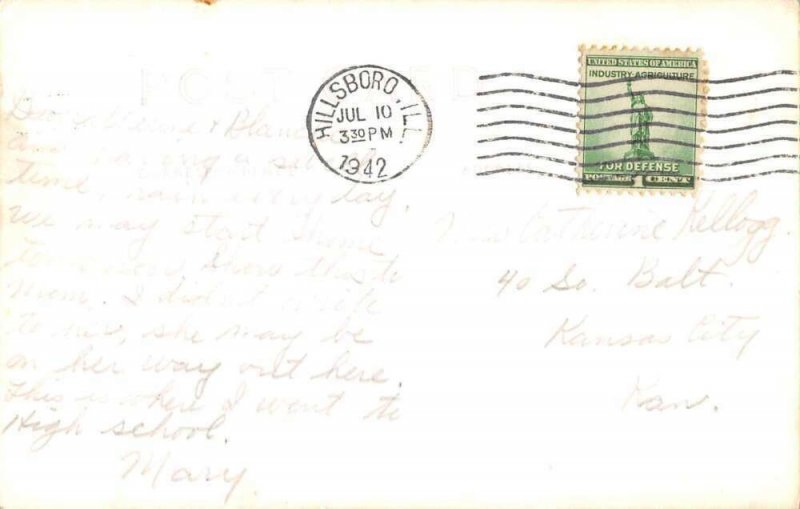 POST CARD
HILLSBORO, ILL.
JUL 10
3 30 PM
1942
UNITED STATES OF AMERICA
INDUSTRY·AGRICULTURE
FOR DEFENSE
POSTAGE 1 CENT
having a
time, rain every day.
We may start home
show this to
Mom. I didn't write
to she may be
on her way out here.
This is where I went to
High school.
Mary.
Miss Catherine Kellogg.
40 So. Balt.
Kansas City
Kan.